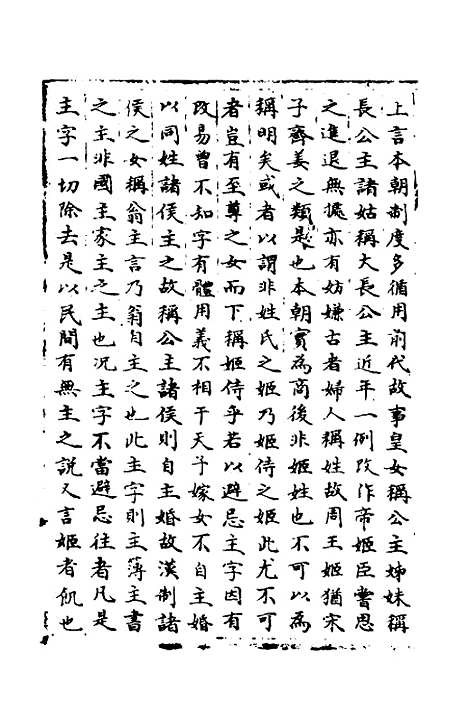 上言本朝制度多循用前代故事皇女稱公主姊妹稱
長公主諸姑稱大長公主近年一例改作帝姬臣嘗思
之進退無據亦有妨嫌古者婦人稱姓故周王姬猶宋
子齊姜之類是也本朝實為商後非姬姓也不可以為
稱明矣或者以謂非姓氏之姬乃姬侍之姬此尤不可
者豈有至尊之女而下稱姬侍乎若以避忌主字因有
改易曾不知字有體用義不相干天子嫁女不自主婚
以同姓諸侯主之故稱公主諸侯則自主婚故漢制諸
侯之女稱翁主言乃翁自主之也此主字則主簿主書
之主非國主家主之主也况主字不當避忌徃者凡是
主字一切除去是以民間有無主之說又言姬者飢也